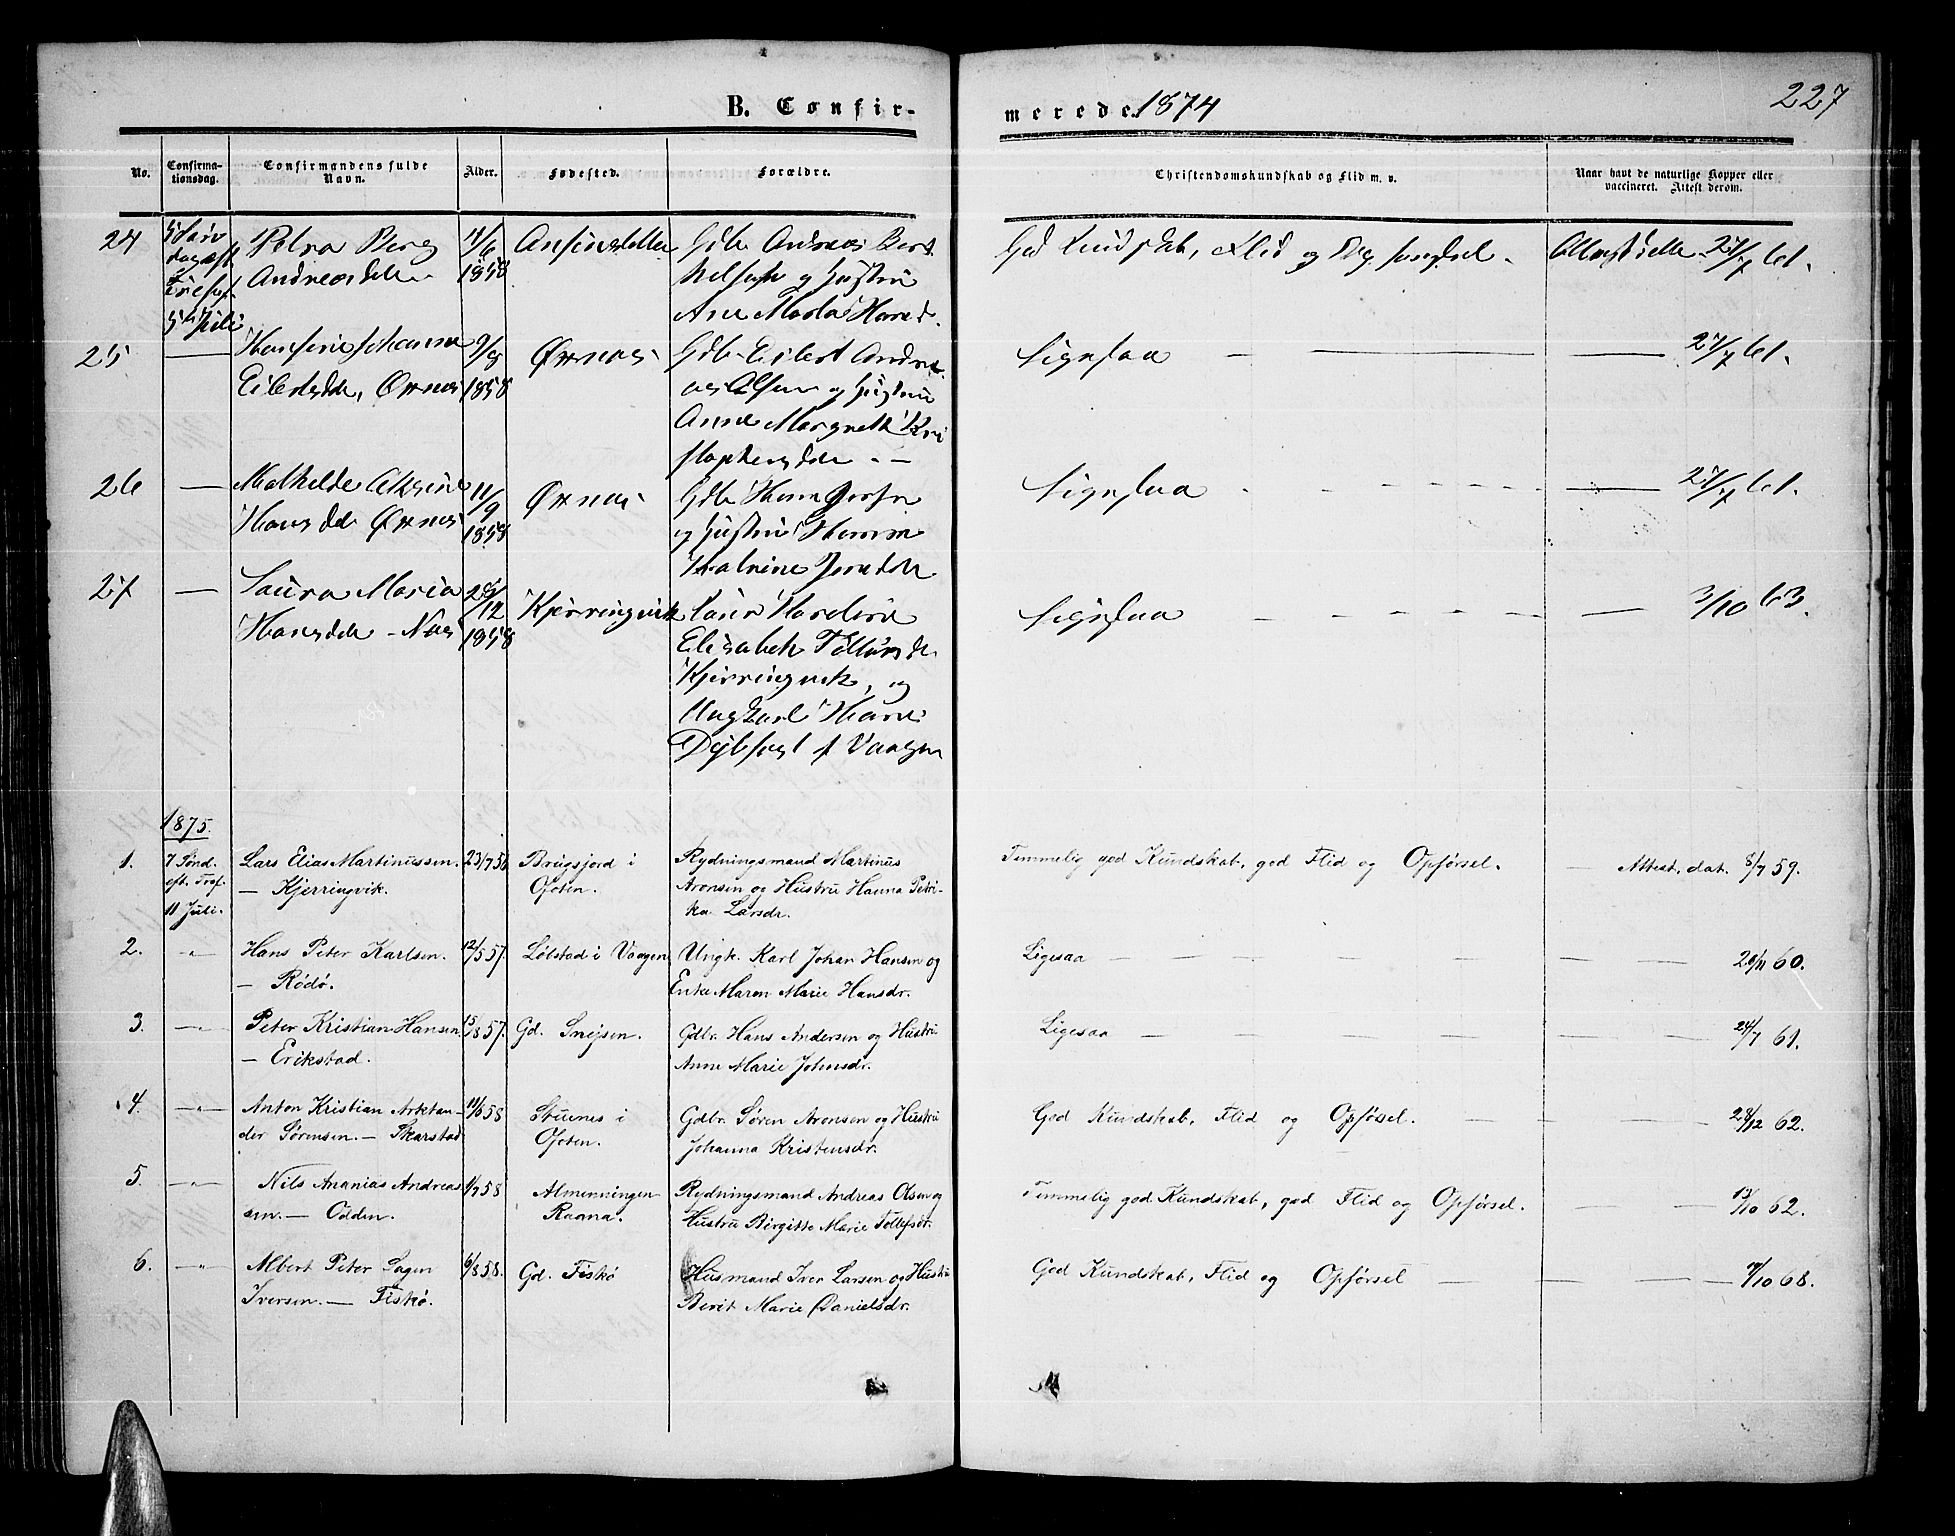 B. Confir-
merede. 1874
227
No.
Confirma-
tionsdag.
Confirmandens fulde
Navn.
Alder.
Fødested.
Forældre.
Christendomskundskab og Flid m. v.
Naar havt de naturlige Kopper eller
vaccineret. Attest derom.
24
Petra Berg
Andreasdtr
11/6
1858
God Kundskab, Flid og
27/7 61.
Ane Marta
5 Juli
25
Johanna
Eilertsdtr, Ørnes
9/8
1858
Ørnes
Gdbr Eilert Andre-
as Olsen og Hustru
Anne Margreth Kri
stophersdtr
Ligesaa
27/7 61.
26
Mathilde
Hansdtr Ørnes
11/9
1858
Ørnes
Gdbr Hans
og Hustru
Ligesaa
27/7 61.
27
Laura Maria
Hansdtr - Næs
28/12
1858
Kjerringvik
Elisabeth
Kjerringvik, og
Ungkarl Hans
Ligesaa
3/10 63.
1875.
1.
7 Sønd.
eft. Tref.
11 Juli.
Lars Elias Martinussen.
— Kjerringvik.
23/7 56
Brugsjord i
Ofoten.
Rydningsmand Martinus
Aronsen og Hustru Hanna Petri-
ka Larsdr.
Temmelig god Kundskab, god Flid og Opførsel.
Attest, dat. 8/7 59.
2.
— " —
Hans Peter Karlsen.
— Rödö.
12/5 57.
Løbstad i Vaagen
Ungk. Karl Johan Hansen og
Enke Maren Marie Hansdr.
Ligesaa
20/11 60.
3.
— " —
Peter Kristian Hansen
— Erikstad.
15/8 57.
Gd. Snejsen.
Gdbr. Hans Andersen og Hustru
Anne Marie Johnsdr.
Ligesaa
24/7 61.
4.
— " —
Anton Kristian Arktan-
der Sørensen. — Skarstad
11/6 58
Stuenes i
Ofoten.
Gdbr. Søren Aronsen og Hustru
Johanna Kristensdr.
God Kundskab, Flid og Opførsel.
28/12 62.
5.
— " —
Nils Ananias Andreas
sen. — Odden.
1/7 58
Almenningen
Raana.
Rydningsmand Andreas Olsen og
Hustru Birgitte Marie Tollefsdr.
Temmelig god Kundskab, god Flid og Opførsel.
13/10 62.
6.
— " —
Albert Peter Sagen
Iversen. — Fiskö.
6/8 58.
Gd. Fiskö
Husmand Iver Larsen og Hustru
Berit Marie Danielsdr.
God Kundskab, Flid og Opførsel
9/10 68.